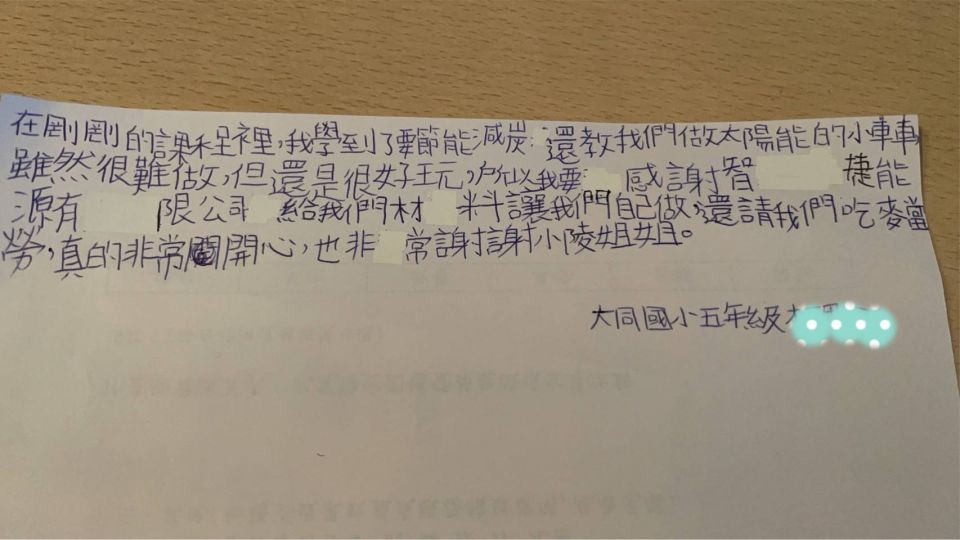 在剛剛的課程裡,我學到了要節能減炭,還教我們做太陽能的小車車,
雖然很難做,但還是很好玩,所以我要感謝智捷能
源有限公司給我們材料讓我們自己做,還請我們吃麥當
勞,真的非常開心,也非常謝謝小陵姐姐。
大同國小五年級